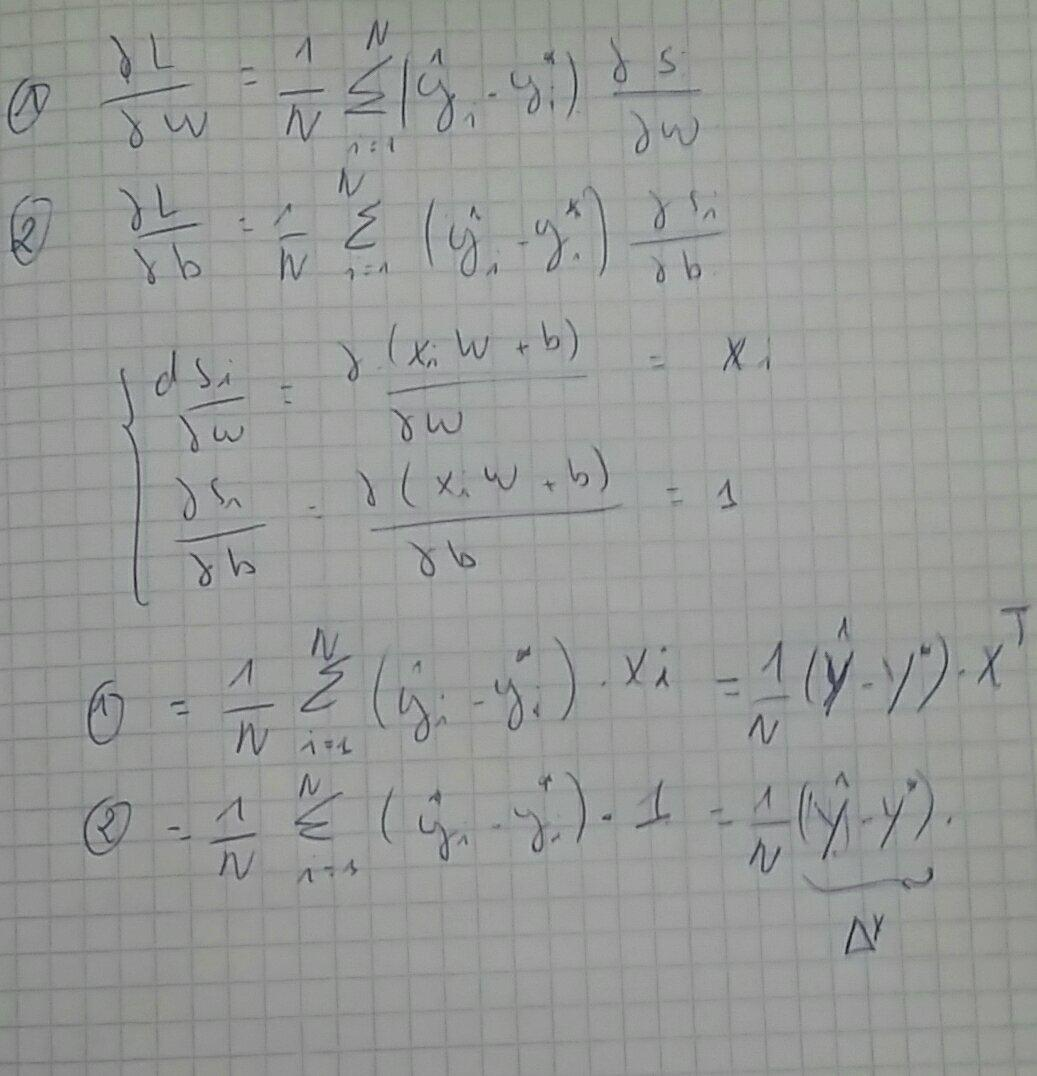 ① ∂L/∂w = 1/N ∑_{i=1}^{N} (ŷ_i - y_i^*) ∂s/∂w
② ∂L/∂b = 1/N ∑_{i=1}^{N} (ŷ_i - y_i^*) ∂s_i/∂b
{ ds_i/∂w = ∂(x_i w + b)/∂w = x_i
∂s_i/∂b = ∂(x_i w + b)/∂b = 1
① = 1/N ∑_{i=1}^{N} (ŷ_i - y_i^*) · x_i = 1/N (Ŷ - Y^*) · X^T
② = 1/N ∑_{i=1}^{N} (ŷ_i - y_i^*) · 1 = 1/N (Ŷ - Y^*) .
ΔY